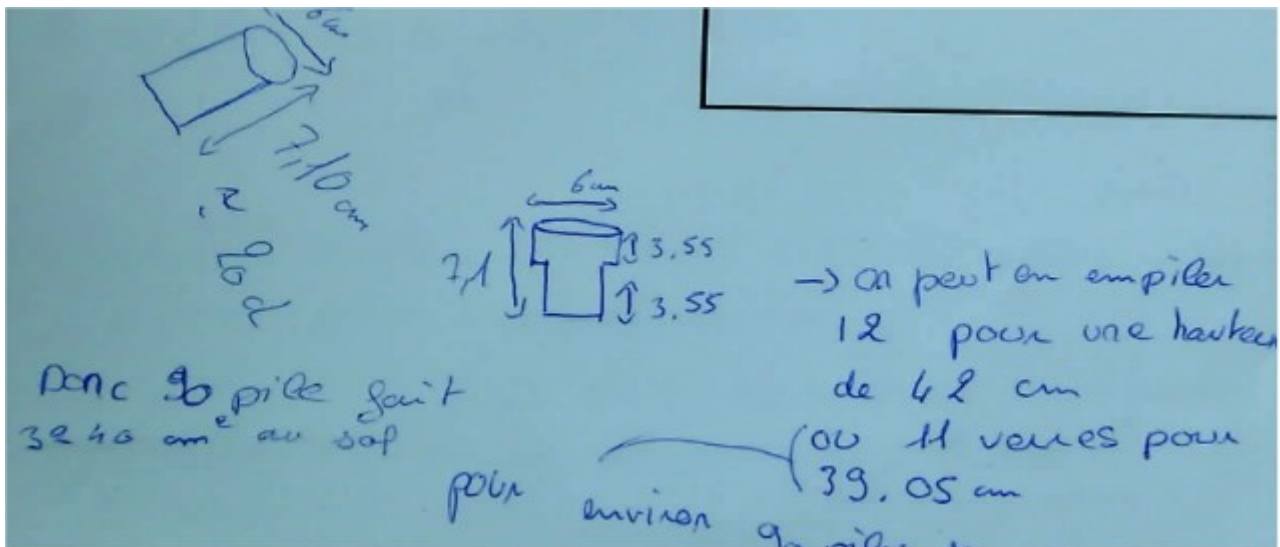 6cm
7,10 cm
6 cm
7,1
3.55
3.55
-> on peut en empiler
12 pour une hauteur
de 42 cm
(ou 11 verres pour
39.05 cm
Donc 90 pile fait
3240 cm² au sol
pour environ 90